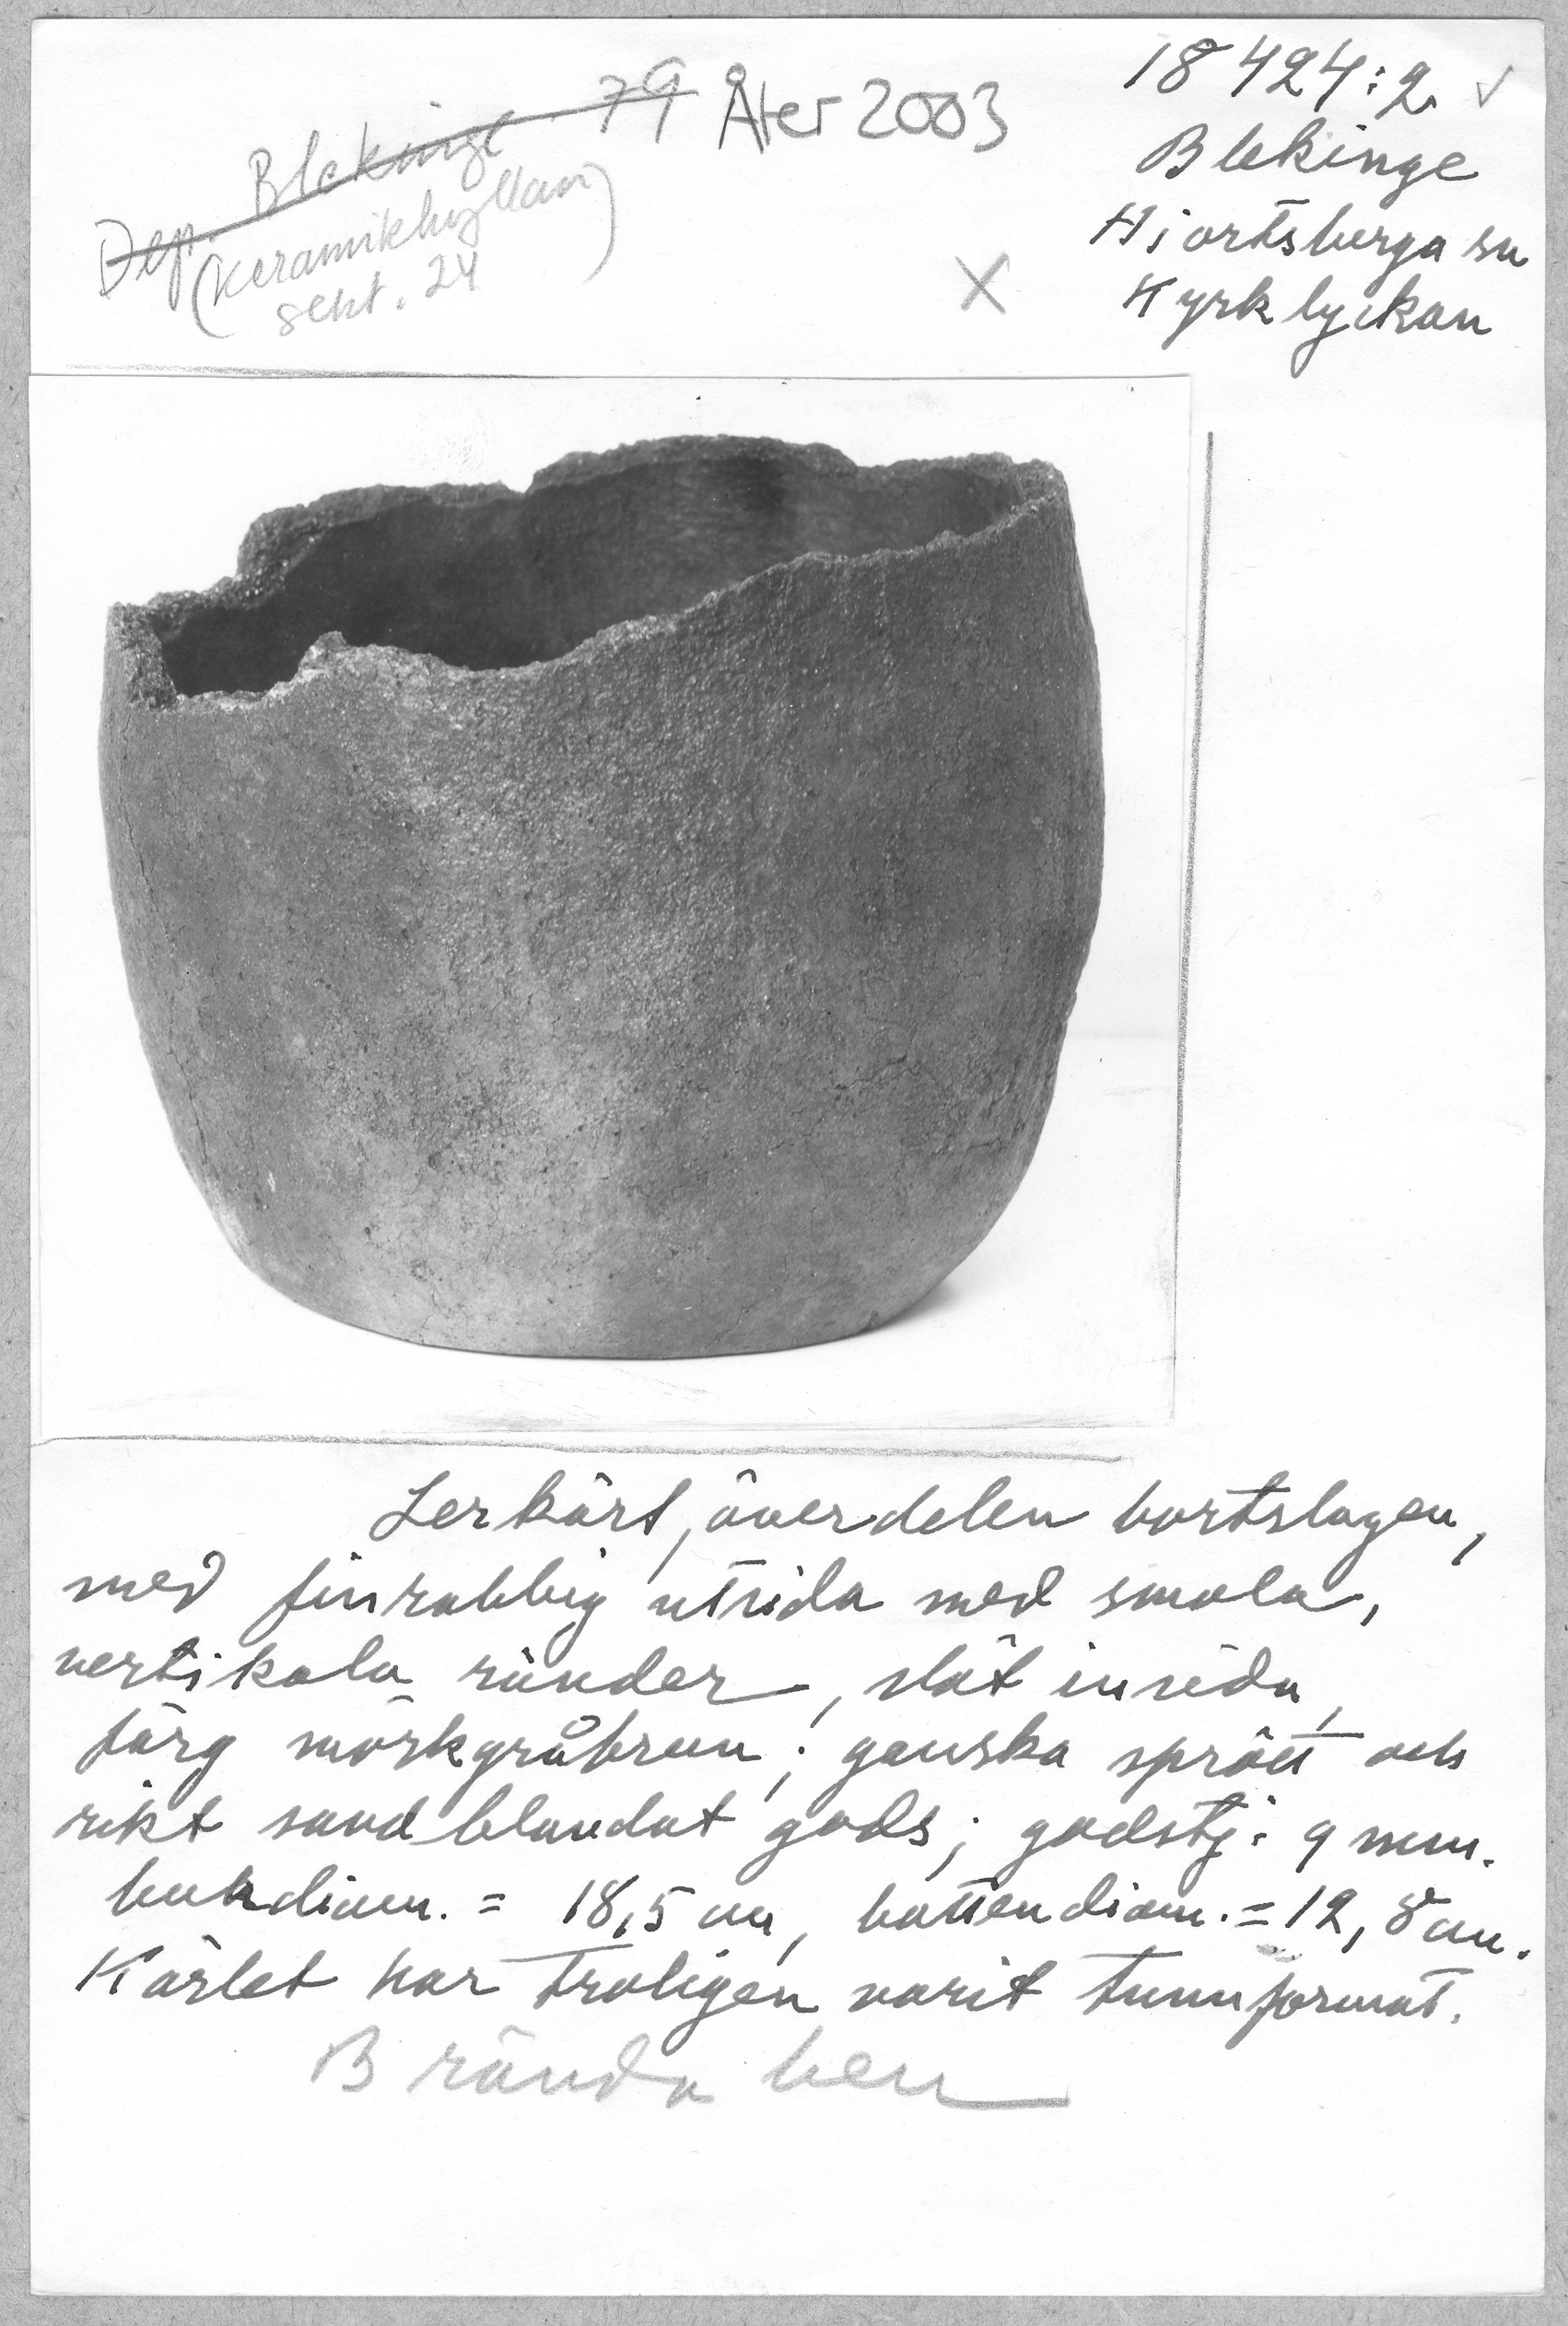 Dep. Blekinge 79 Åter 2003
(Keramikhyllan)
sekt. 24
X
18424:2. ✓
Blekinge
Hjortsberga sn
Kyrklyckan
Lerkärl, överdelen bortslagen,
med finrabbig utsida med smala,
vertikala ränder, slät insida,
färg mörkgråbrun; ganska sprött och
rikt sandblandat gods; godstj: 9 mm.
bukdiam. = 18,5 cm, bottendiam. = 12,8 cm.
Kärlet har troligen varit tunnformat.
Brända ben